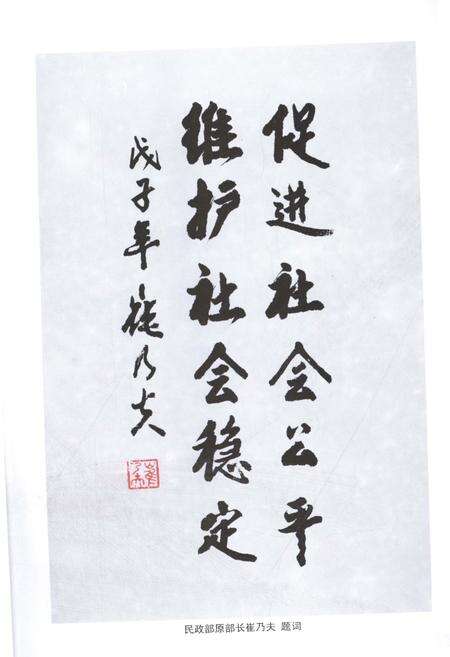 促进社会公平
维护社会稳定
戊子年 崔乃夫
民政部原部长崔乃夫 题词